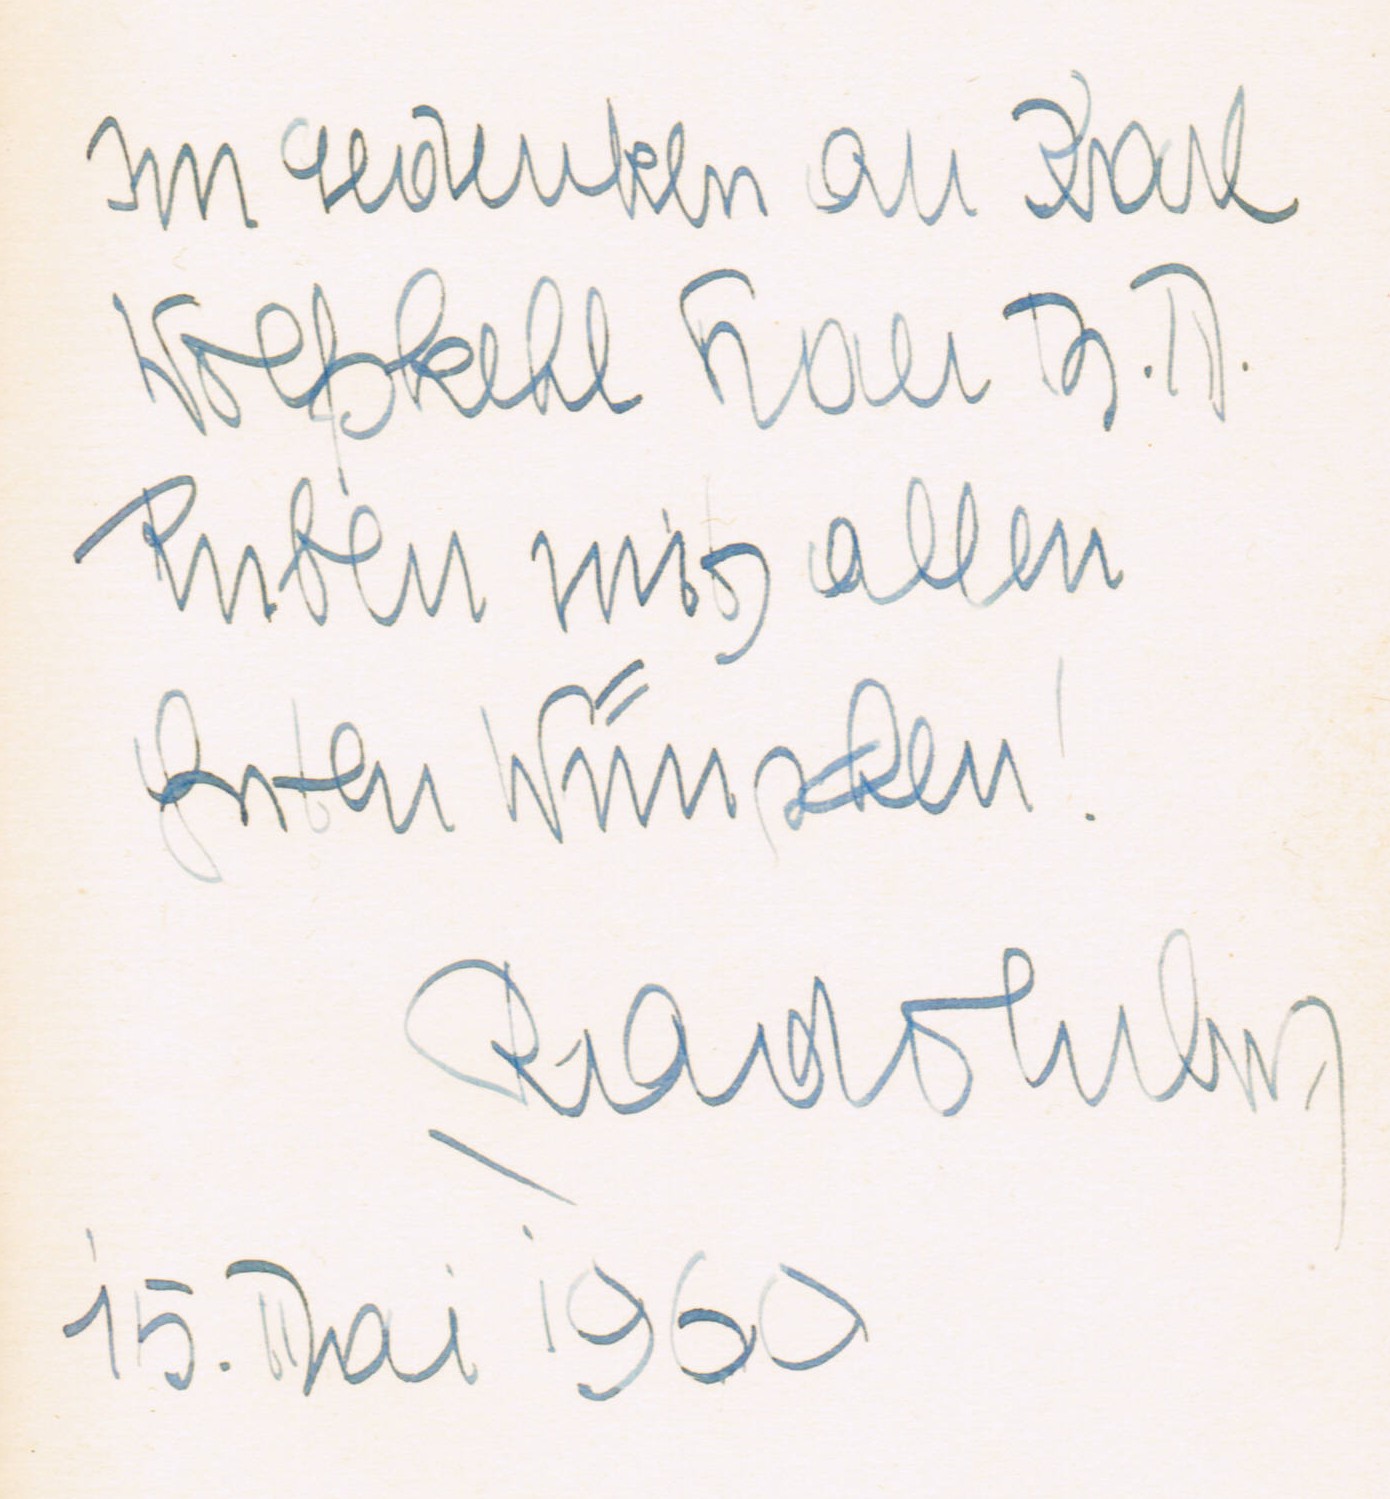 Im Gedenken an Karl
Wolfskehl Frau M. M.
Ruben mit allen
guten Wünschen!
15. Mai 1960